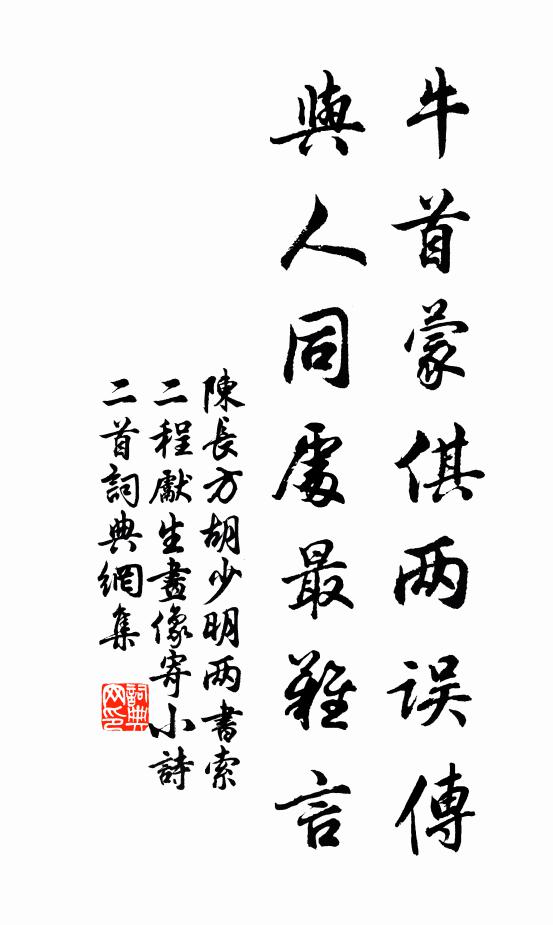 牛首蒙倛两误傳
與人同處最難言
陳長方胡少明两書索
二程獻生畫像寄小詩
二首詞典網集
詞典网印